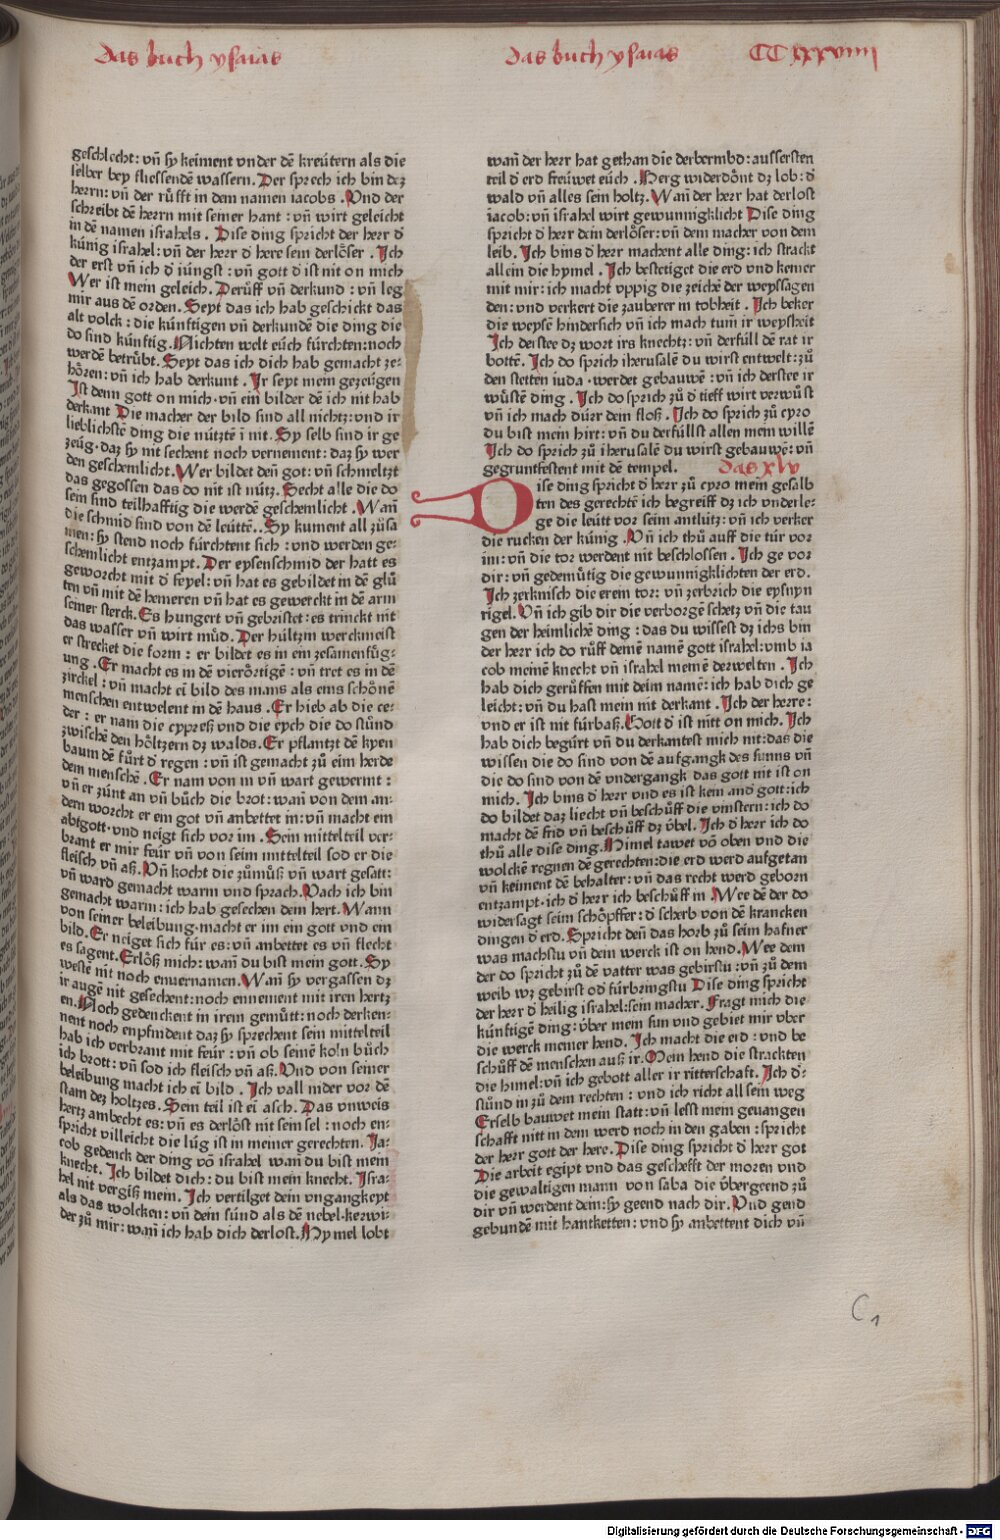 das buch ysaias
das buch ysaias
CC lxxxviiii
geschlecht: vñ sy keiment vnder dē kreútern als die
selber bey fliessendē wassern. Der sprech ich bin dez
herrn: vñ der růfft in dem namen iacobs. Vnd der
schreibt dē herrn mit seiner hant: vñ wirt geleicht
in dē namen israhels. Dise ding spricht der herr đ
kúnig israhel: vñ der herr đ here sein derlôser. Ich
der erst vñ ich đ iúngst: vñ gott đ ist nit on mich
Wer ist mein geleich. Derůff vñ derkund: vñ leg
mir aus dē orden. Seyt das ich hab geschickt das
alt volck: die kúnftigen vñ derkundē die ding die
do sind kúnftig. Nichten welt eúch fúrchten: noch
werdē betrůbt. Seyt das ich dich hab gemacht ze-
hôren: vñ ich hab derkunt. Ir seyt mein gezeúgen
Ist denn gott on mich. vñ ein bilder dē ich nit hab
derkant Die macher der bild sind all nichtz: vnd ir
lieblichstē ding die nútztē ī nit. Sy selb sind ir ge
zeúg. daz sy nit sechent noch vernement: daz sy wer
den geschemlicht. Wer bildet deñ got: vñ schmeltzt
das gegossen das do nit ist nútz. Secht alle die do
sein sind teilhafftig die werdē geschemlicht. Wañ
die schmid sind von dē leúttē.. Sy kument all zůsa
men: sy stend noch fúrchtent sich: vnd werden ge-
schemlicht entzampt. Der eysenschmid der hatt es
geworcht mit đ feyel: vñ hat es gebildet in dē glů
ten vñ mit dē hemeren vñ hat es gewerckt in dē arm
seiner sterck. Es hungert vñ gebristet: es trinckt nit
das wasser vñ wirt můd. Der húltzin werckmeist
er strecket die form: er bildet es in ein zesamenfůg-
ung. Er macht es in dē vierôrtigē: vñ tret es in dē
zirckel: vñ macht eī bild des mans als eins schônē
menschen entwelent in dē haus. Er hieb ab die ce-
der: er nam die cypreß vnd die eych die do stůnd
zwischē den hôltzern dz walds. Er pflantzt dē kyen
baum dē fúrt đ regen: vñ ist gemacht zů eim herde
dem menschē. Er nam von in vñ wart gewermt:
vñ er zúnt an vñ bůch die brot: wañ von dem an-
dern worcht er ein got vñ anbettet in: vñ macht ein
abtgott. vnd neigt sich vor im. Sein mittelteil ver-
brant er mir feúr vñ von seim mittelteil sod er die
fleisch vñ aß. Vñ kocht die zůmůß vñ wart gesatt:
vñ ward gemacht warm vnd sprach. Vach ich bin
gemacht warm: ich hab gesechen dem hert. Wann
von seiner beleibung. macht er im ein gott vnd ein
bild. Er neiget sich fúr es: vñ anbettet es vñ flecht
es sagent. Erlôß mich: wañ du bist mein gott. Sy
westē nit noch enuernamen. Wañ sy vergassen dz
ir augē nit gesechent: noch ennement mit iren hertz
en. Noch gedenckent in irem gemútt: noch derken-
nent noch enpfindent daz sy sprechent sein mittelteil
hab ich verbrant mit feúr: vñ ob seinē koln bůch
ich brott: vñ sod ich fleisch vñ aß. Vnd von seiner
beleibung macht ich eī bild. Ich vall nider vor dē
stam dez holtzes. Sein teil ist eī asch. Das vnweis
hertz ambecht es: vñ es derlôst nit sein sel: noch en-
spricht villeicht die lúg ist in meiner gerechten. Ia-
cob gedenck der ding vō israhel wañ du bist mein
knecht. Ich bildet dich: du bist mein knecht. Isra-
hel nit vergiß mein. Ich vertilget dein vngangkeyt
als das wolcken: vñ dein súnd als dē nebel. kerwi-
der zů mir: wañ ich hab dich derlost. Hymel lobt
wañ der herr hat gethan die derbermbd: aussersten
teil đ erd freúwet eúch. Berg widerdônt dz lob: đ
wald vñ alles sein holtz. Wañ der herr hat derlost
iacob: vñ israhel wirt gewunnigklicht Dise ding
spricht đ herr dein derlôser: vñ dem macher von dem
leib. Ich bins đ herr machent alle ding: ich strackt
allein die hymel. Ich bestetiget die erd vnd keiner
mit mir: ich macht vppig die zeichē der weyssagen
den: vnd verkert die zauberer in tobheit. Ich beker
die weysē hindersich vñ ich mach tum̄ ir weysheit
Ich derstee dz wort irs knechtz: vñ derfúll dē rat ir
bottē. Ich do sprich iherusalē du wirst entwelt: zů
den stetten iuda. werdet gebauwē: vñ ich derstee ir
wůstē ding. Ich do sprich zů đ tieff wirt verwůst
vñ ich mach dúrr dein floß. Ich do sprich zů cyro
du bist mein hirt: vñ du derfúllst allen mein willē
Ich do sprich zů iherusalē du wirst gebauwē: vñ
gegruntfestent mit dē tempel.
das xlv
Dise ding spricht đ herr zů cyro mein gesalb
ten des gerechtē ich begreiff dz ich vnderle-
ge die leútt vor seim antlútz: vñ ich verker
die rucken der kúnig. Vñ ich thů auff die túr vor
im: vñ die tor werdent nit beschlossen. Ich ge vor
dir: vñ gedemútig die gewunnigklichten der erd.
Ich zerknisch die erein tor: vñ zerbrich die eysnyn
rigel. Vñ ich gib dir die verborgē schetz vñ die tau
gen der heimlichē ding: das du wissest dz ichs bin
der herr ich do růff deinē namē gott israhel: vmb ia
cob meinē knecht vñ israhel meinē derwelten. Ich
hab dich gerůffen mit deim namē: ich hab dich ge
leicht: vñ du hast mein nit derkant. Ich der herre:
vnd er ist nit fúrbaß. Gott đ ist nitt on mich. Ich
hab dich begúrt vñ du derkantest mich nit: das die
wissen die do sind von dē aufgangk des sunns vñ
die do sind von dē vndergangk das gott nit ist on
mich. Ich bins đ herr vnd es ist kein and gott: ich
do bildet daz liecht vñ beschůff die vinstern: ich do
macht dē frid vñ beschůff dz úbel. Ich đ herr ich do
thů alle dise ding. Himel tawet vō oben vnd die
wolckē regnen dē gerechten: die erd werd aufgetan
vñ keiment dē behalter: vñ das recht werd geborn
entzampt. ich đ herr ich beschůff in. Wee dē der do
widersagt seim schôpffer: đ scherb von dē krancken
dingen đ erd. Spricht deñ das horb zů seim hafner
was machstu vñ dem werck ist on hend. Wee dem
der do spricht zů dē vatter was gebirstu: vñ zů dem
weib wz gebirst ođ fúrbringstu Dise ding spricht
der herr đ heilig israhel: sein macher. Fragt mich die
kúnftigē ding: úber mein sun vnd gebiet mir vber
die werck meiner hend. Ich macht die erd: vnd be
schůff dē menschen auß ir. Mein hend die strackten
die himel: vñ ich gebott aller ir ritterschaft. Ich đ-
stůnd in zů dem rechten: vnd ich richt all sein weg
Erselb bauwet mein statt: vñ lesst mein geuangen
schafft nitt in dem werd noch in den gaben: spricht
der herr gott der here. Dise ding spricht đ herr got
Die arbeit egipt vnd das geschefft der moren vnd
die gewaltigen mann von saba die úbergeend zů
dir vñ werdent dein: sy geend nach dir. Vnd gend
gebundē mit hantketten: vnd sy anbettent dich vñ
C1
Digitalisierung gefördert durch die Deutsche Forschungsgemeinschaft - DFG